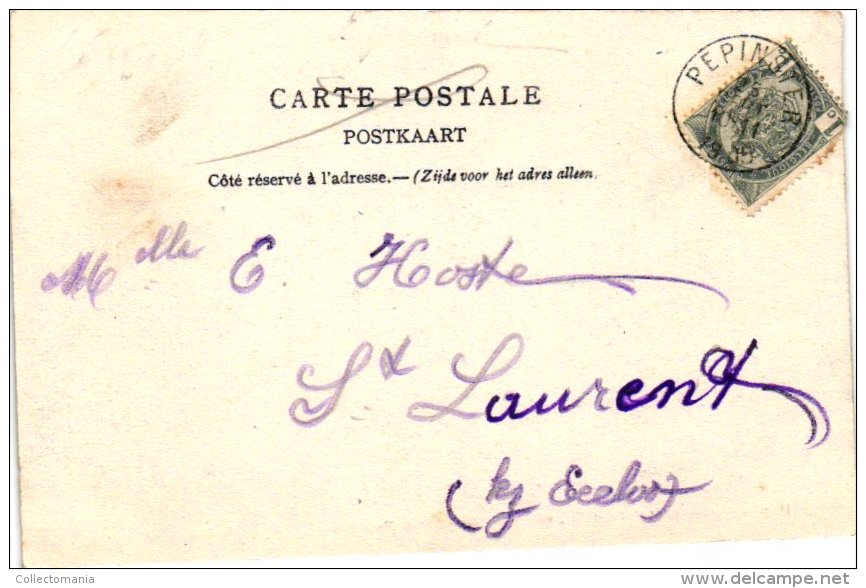 CARTE POSTALE
POSTKAART
Côté réservé à l'adresse.—(Zijde voor het adres alleen.
PEPINSTER
BELGIQUE
1
Mlle E. Hoste
St Laurent
(bij Eecloo)
Collectomania
delcampe.net